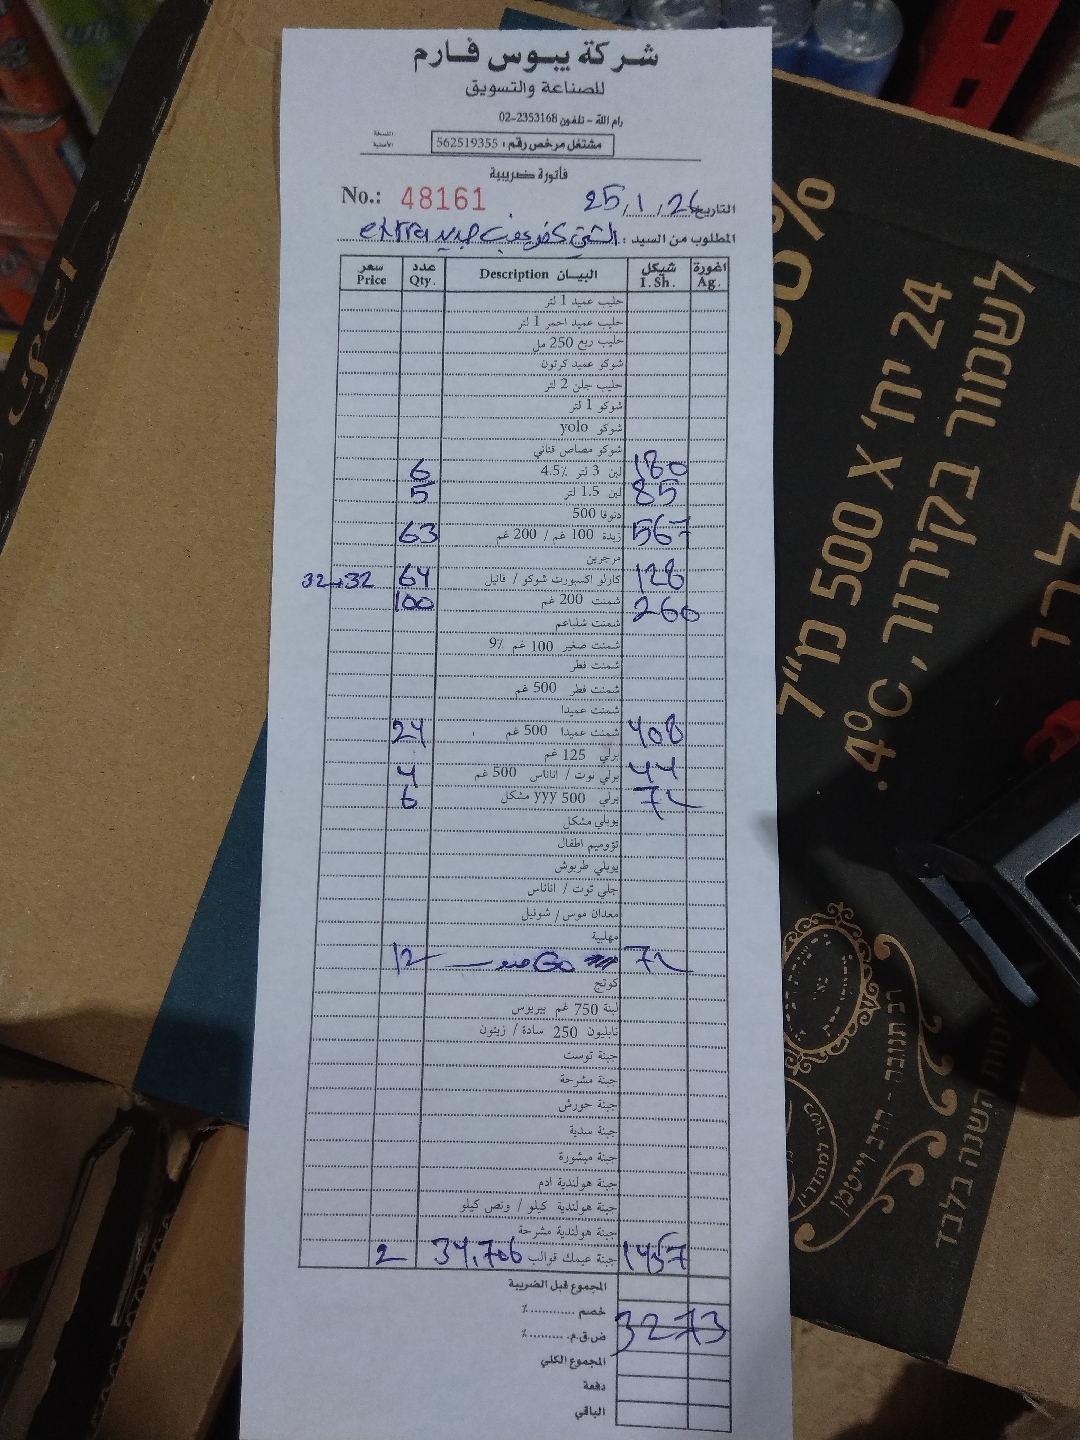 شركة يبوس فارم
للصناعة والتسويق
رام الله - تلفون 2353168-02
مشتغل مرخص رقم: 562519355
النسخة الأصلية
فاتورة ضريبية
No.: 48161
التاريخ 25/1/26
المطلوب من السيد: extra
سعر Price عدد Qty. البيـــان Description شيكل I. Sh. اغورة Ag.
حليب عميد 1 لتر
حليب عميد احمر 1 لتر
حليب ربع 250 مل
شوكو عميد كرتون
حليب جلن 2 لتر
شوكو 1 لتر
شوكو yolo
شوكو مصاص قناني
6 لبن 3 لتر 4.5٪ 180
5 لبن 1.5 لتر 85
دنوفا 500
63 زبدة 100 غم / 200 غم 567
مرجرين
32+32 64 كارلو اكسبورت شوكو / فانيل 128
100 شمنت 200 غم 260
شمنت شلباعم
شمنت صغير 100 غم 9٪
شمنت فطر
شمنت فطر 500 غم
شمنت عميدا
24 شمنت عميدا 500 غم 408
برلي 125 غم
4 برلي توت / اناناس 500 غم 44
6 برلي 500 yyy مشكل 72
يوبلي مشكل
تؤوميم اطفال
يوبلي طربوش
جلي توت / اناناس
معدان موس / شوفيل
مهلبية
12 Go 72
كوتج
لبنة 750 غم بيريوس
نابليون 250 سادة / زيتون
جبنة توست
جبنة مشرحة
جبنة حورش
جبنة سدية
جبنة مبشورة
جبنة هولندية ادم
جبنة هولندية كيلو / ونص كيلو
جبنة هولندية مشرحة
2 34,706 جبنة عيمك قوالب 1457
المجموع قبل الضريبة
خصم ............٪
3273
ض.ق.م. ..........٪
المجموع الكلي
دفعة
الباقي
24 יח' X 500 מ"ל
לשמור בקירור, 4°C.
רב תנובה - הרב וייטמן